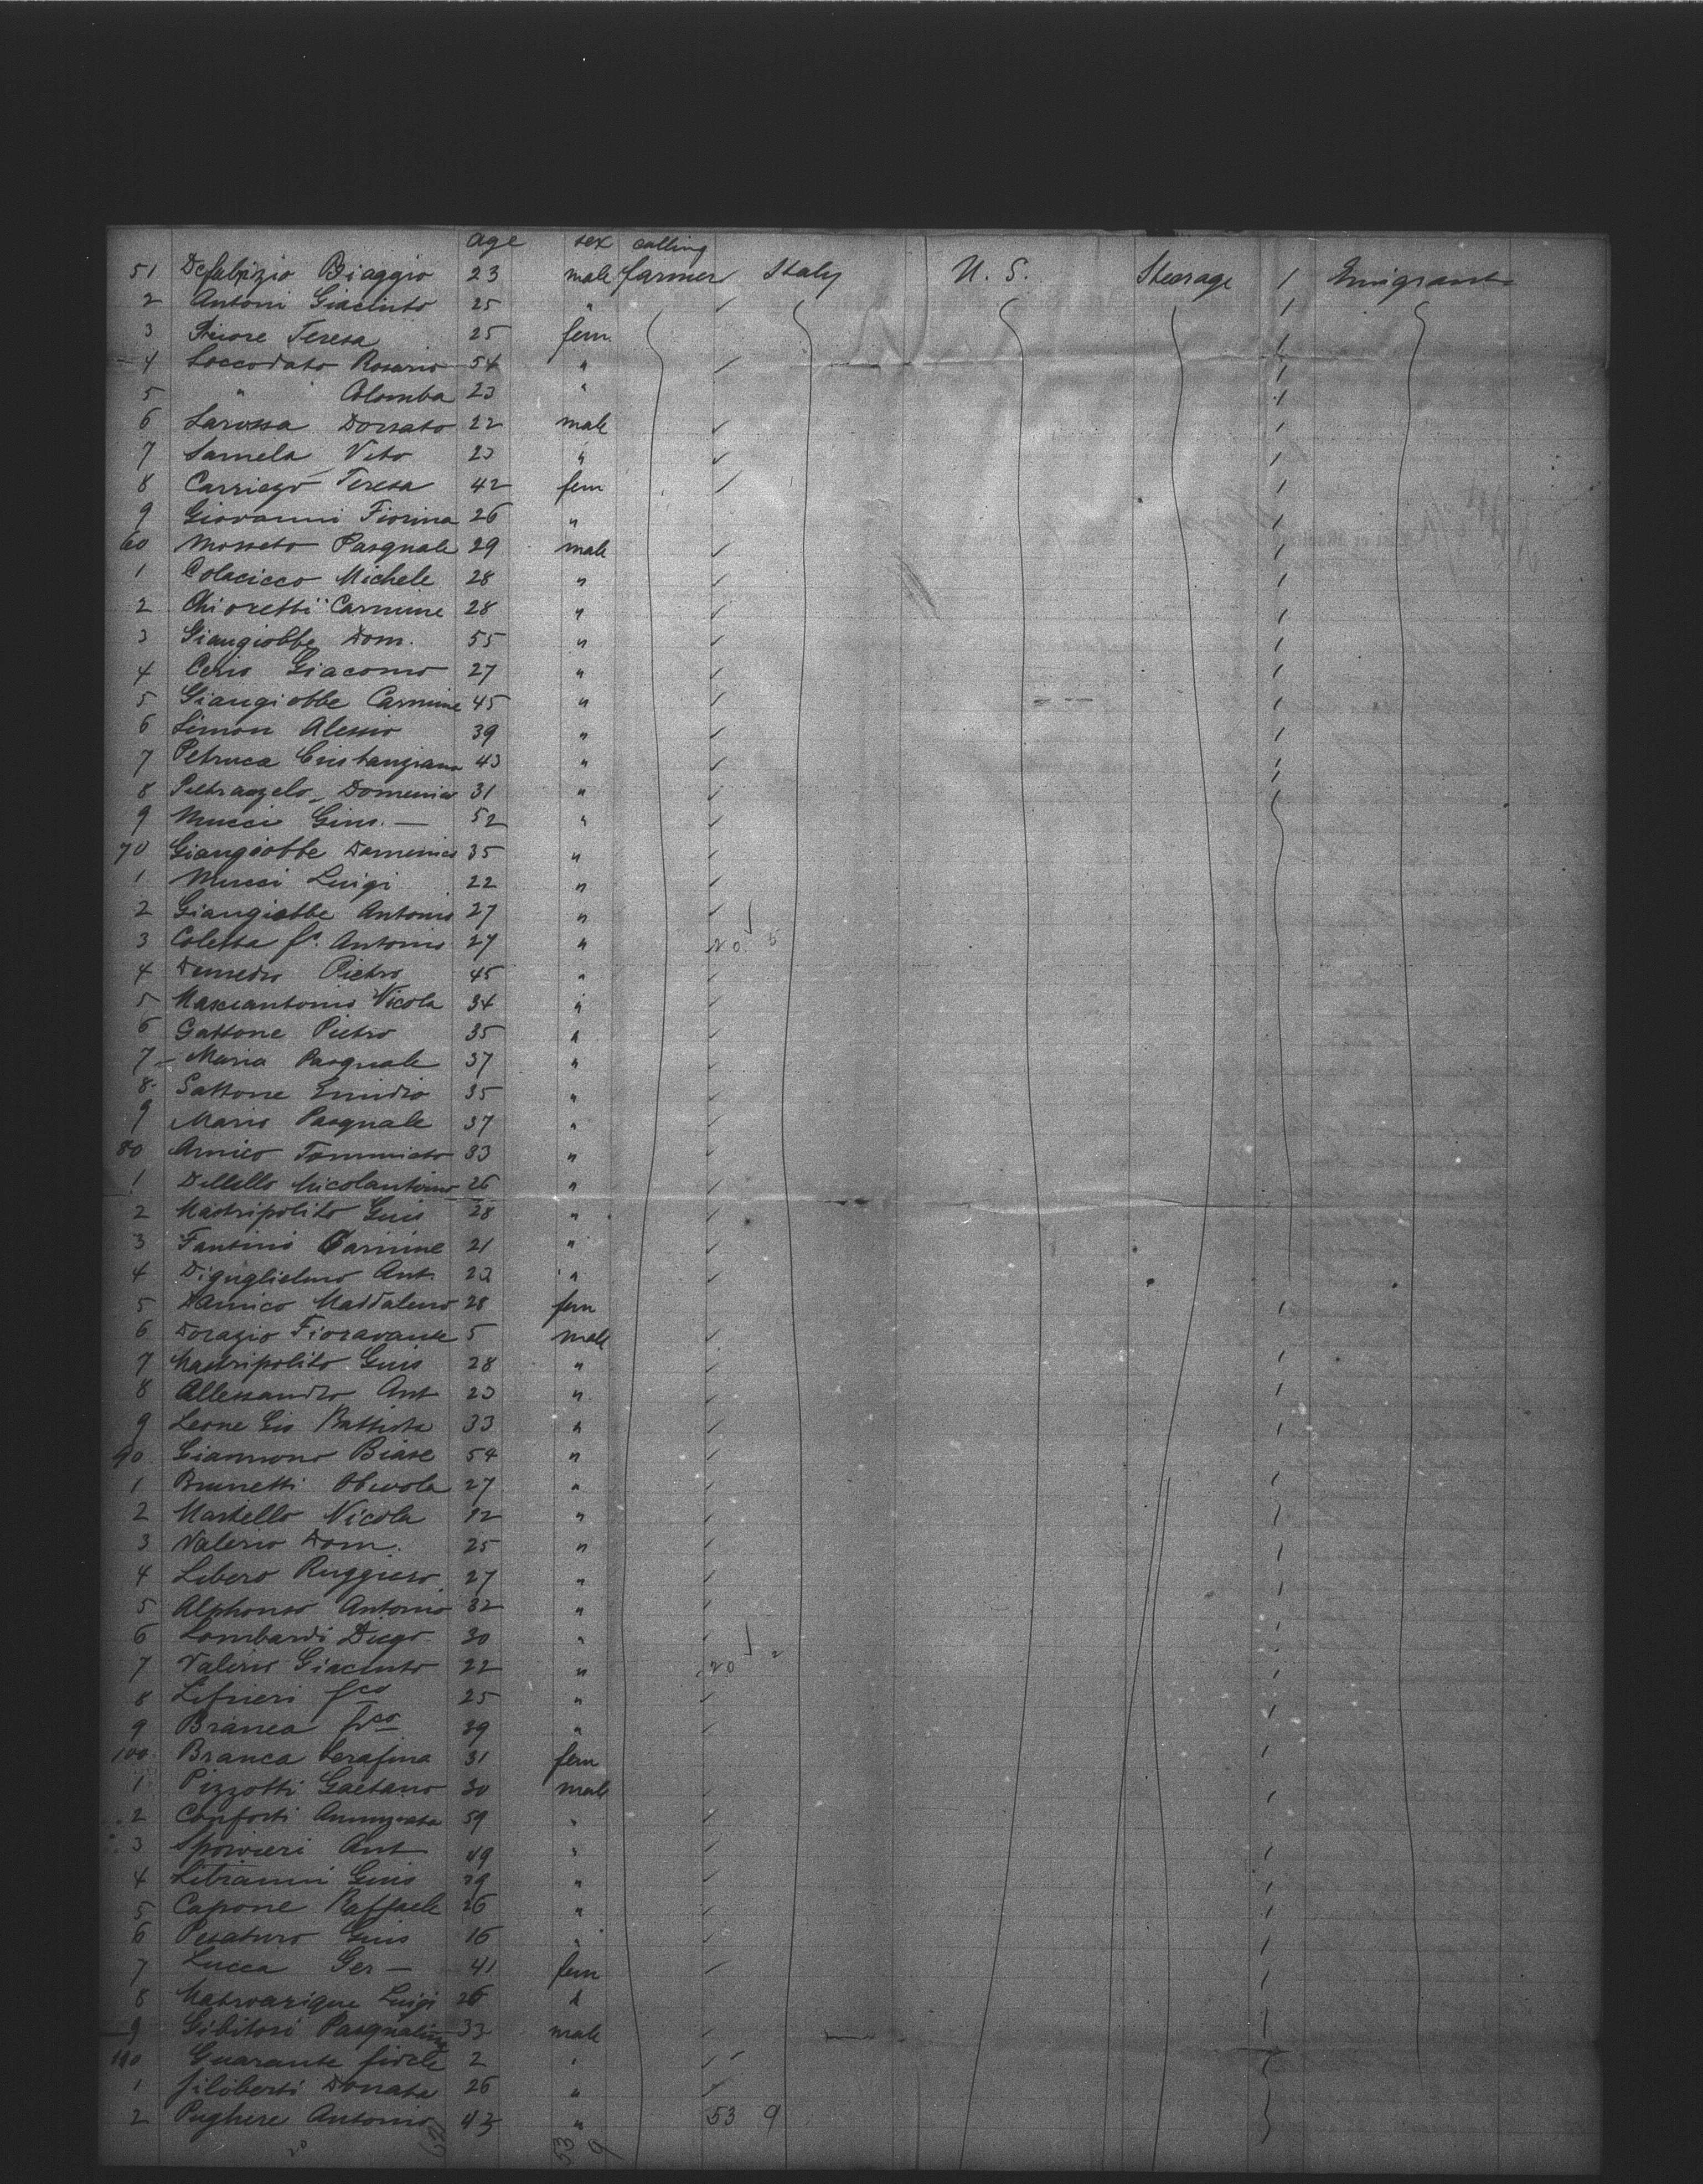 age sex calling
51 Defabrizio Biaggio 23 male farmer Italy U. S. Steerage 1 Emigrant
2 Antoni Giacinto 25 "
3 Fiore Teresa 25 fem.
4 Loccodato Rosario 54 "
5 " Colomba 23 "
6 Larossa Donato 22 male
7 Samela Vito 23 "
8 Carriego Teresa 42 fem
9 Giovanni Fiorina 26 "
60 Mosseto Pasquale 29 male
1 Colacicco Michele 28 "
2 Chioretti Carmine 28 "
3 Giangiobbe Dom. 55 "
4 Cerio Giacomo 27 "
5 Giangiobbe Carmine 45 "
6 Simon Alessio 39 "
7 Petruca 43 "
8 Pietrangelo Domenico 31 "
9 Mucci Gius. — 52 "
70 Giangiobbe Domenico 35 "
1 Mucci Luigi 22 "
2 Giangiobbe Antonio 27 "
3 Coletta fr. Antonio 27 " 20 5
4 Pietro 45 "
5 Masciantonio Nicola 34 "
6 Gattone Pietro 35 "
7 Maria Pasquale 37 "
8 Gattone Emidio 35 "
9 Mario Pasquale 37 "
80 Amico 33 "
1 Dellello Nicolantonio 26 "
2 Mastripolito Guis 28 "
3 Fantini Carmine 21 "
4 Diguglielmo Ant. 23 "
5 Damico Maddaleno 28 fem
6 Dorazio Fioravante 5 male
7 Mastripolito Guis 28 "
8 Allessandro Ant 23 "
9 Leone Gio Battista 33 "
90 Giannono Biase 54 "
1 Brunetti 27 "
2 Martello Nicola 12 "
3 Valerio Dom. 25 "
4 Libero Ruggiero 27 "
5 Alphonso Antonio 32 "
6 Lombardi Diego 30 "
7 Valerio Giacinto 22 " 20 2
8 Lifrieri fco 25 "
9 Branca frco 39 "
100 Branca Serafina 31 fem
1 Pizzotti Gaetano 30 male
2 Conforti Annunziata 59 "
3 Sposieri Ant 49 "
4 Libranni Guis 29 "
5 Capone Raffaele 26 "
6 Pesaturo Guis 16 "
7 Lucca Ger — 41 fem
8 Luigi 26 "
9 Gibitosi Pasqualino 33 male
110 Guarante fidele 2 "
1 filiberti Donata 26 "
2 Pughere Antonio 43 " 53 9
20 53 9